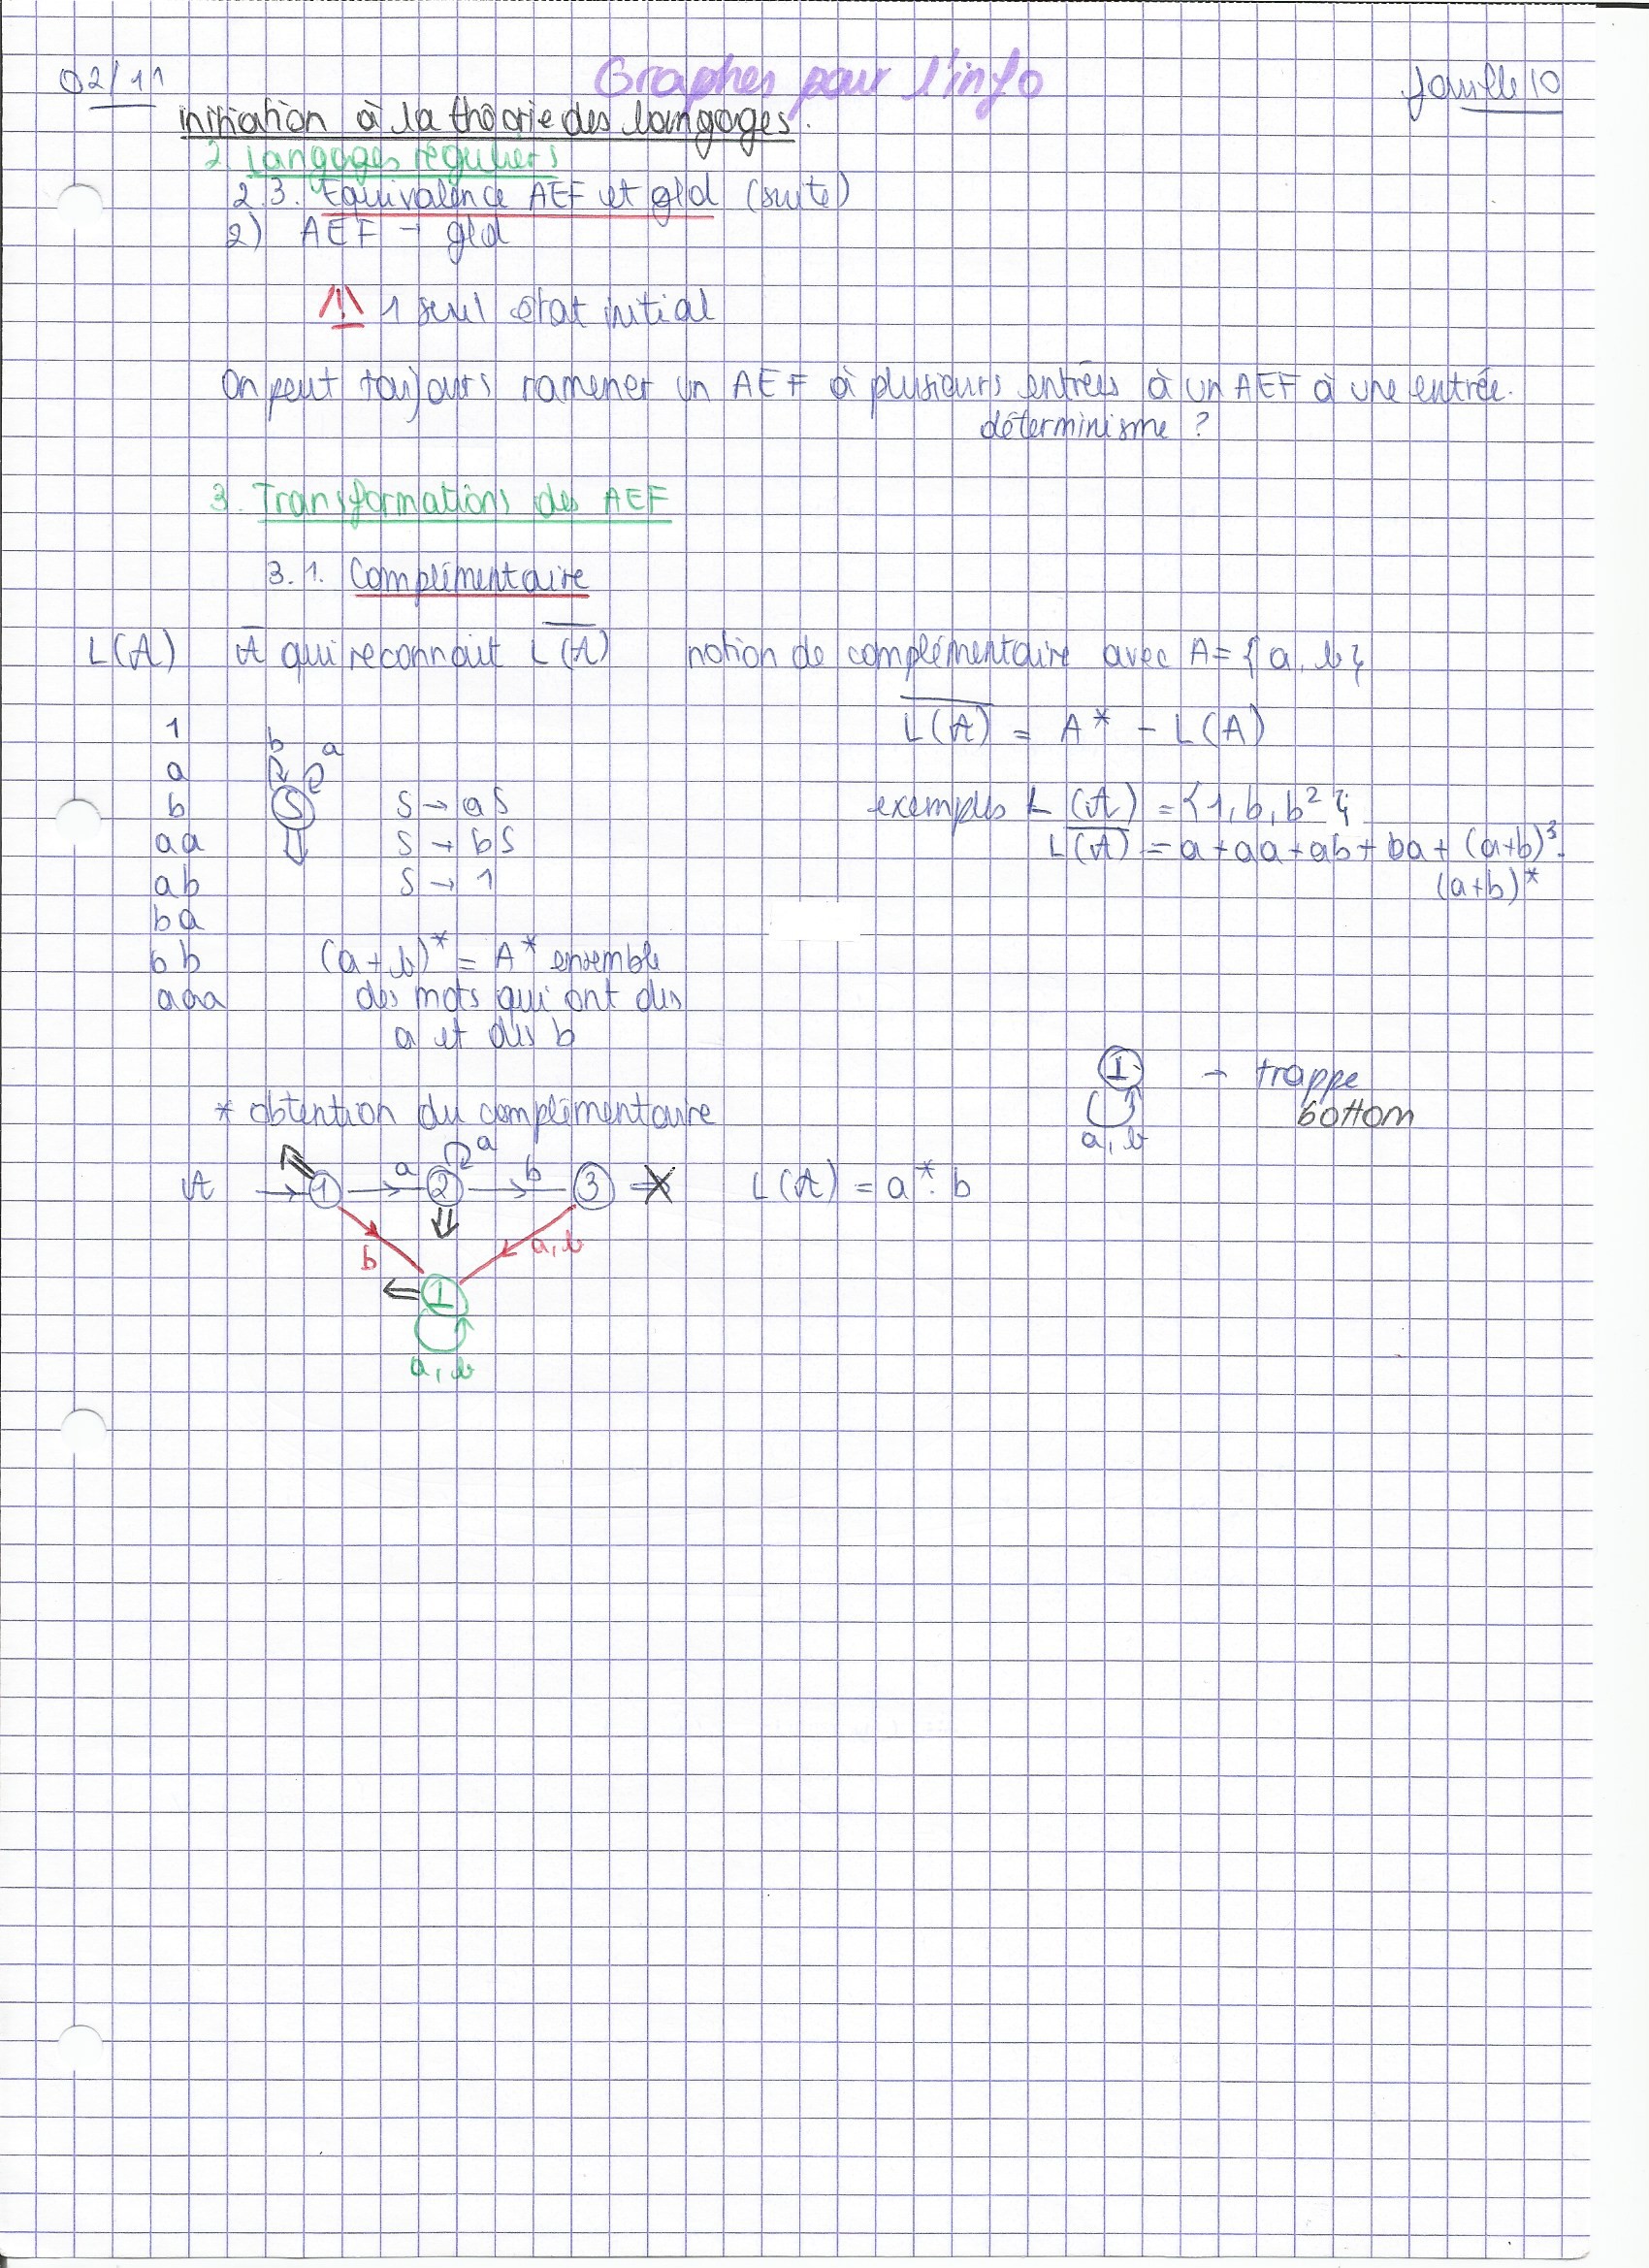 02/11
Graphes pour l'info
feuille 10
initiation à la théorie des langages.
2. Langages réguliers
2.3. Equivalence AEF et gld (suite)
2) AEF → gld
⚠ 1 seul état initial
On peut toujours ramener un AEF à plusieurs entrées à un AEF à une entrée.
déterminisme ?
3. Transformations des AEF
3.1. Complémentaire
L(A) A̅ qui reconnait L̅(̅A̅)̅ notion de complémentaire avec A = {a, b}
L̅(̅A̅)̅ = A* - L(A)
1
a
b
aa
ab
ba
bb
aaa
b a
S
S → aS
S → bS
S → 1
exemples L(A) = {1, b, b²}
L̅(̅A̅)̅ = a + aa + ab + ba + (a+b)³.
(a+b)*
(a+b)* = A* ensemble
des mots qui ont des
a et des b
⊥ → trappe
bottom
a, b
* obtention du complémentaire
A 1 a 2 a b 3 L(A) = a*.b
b a, b
⊥
a, b